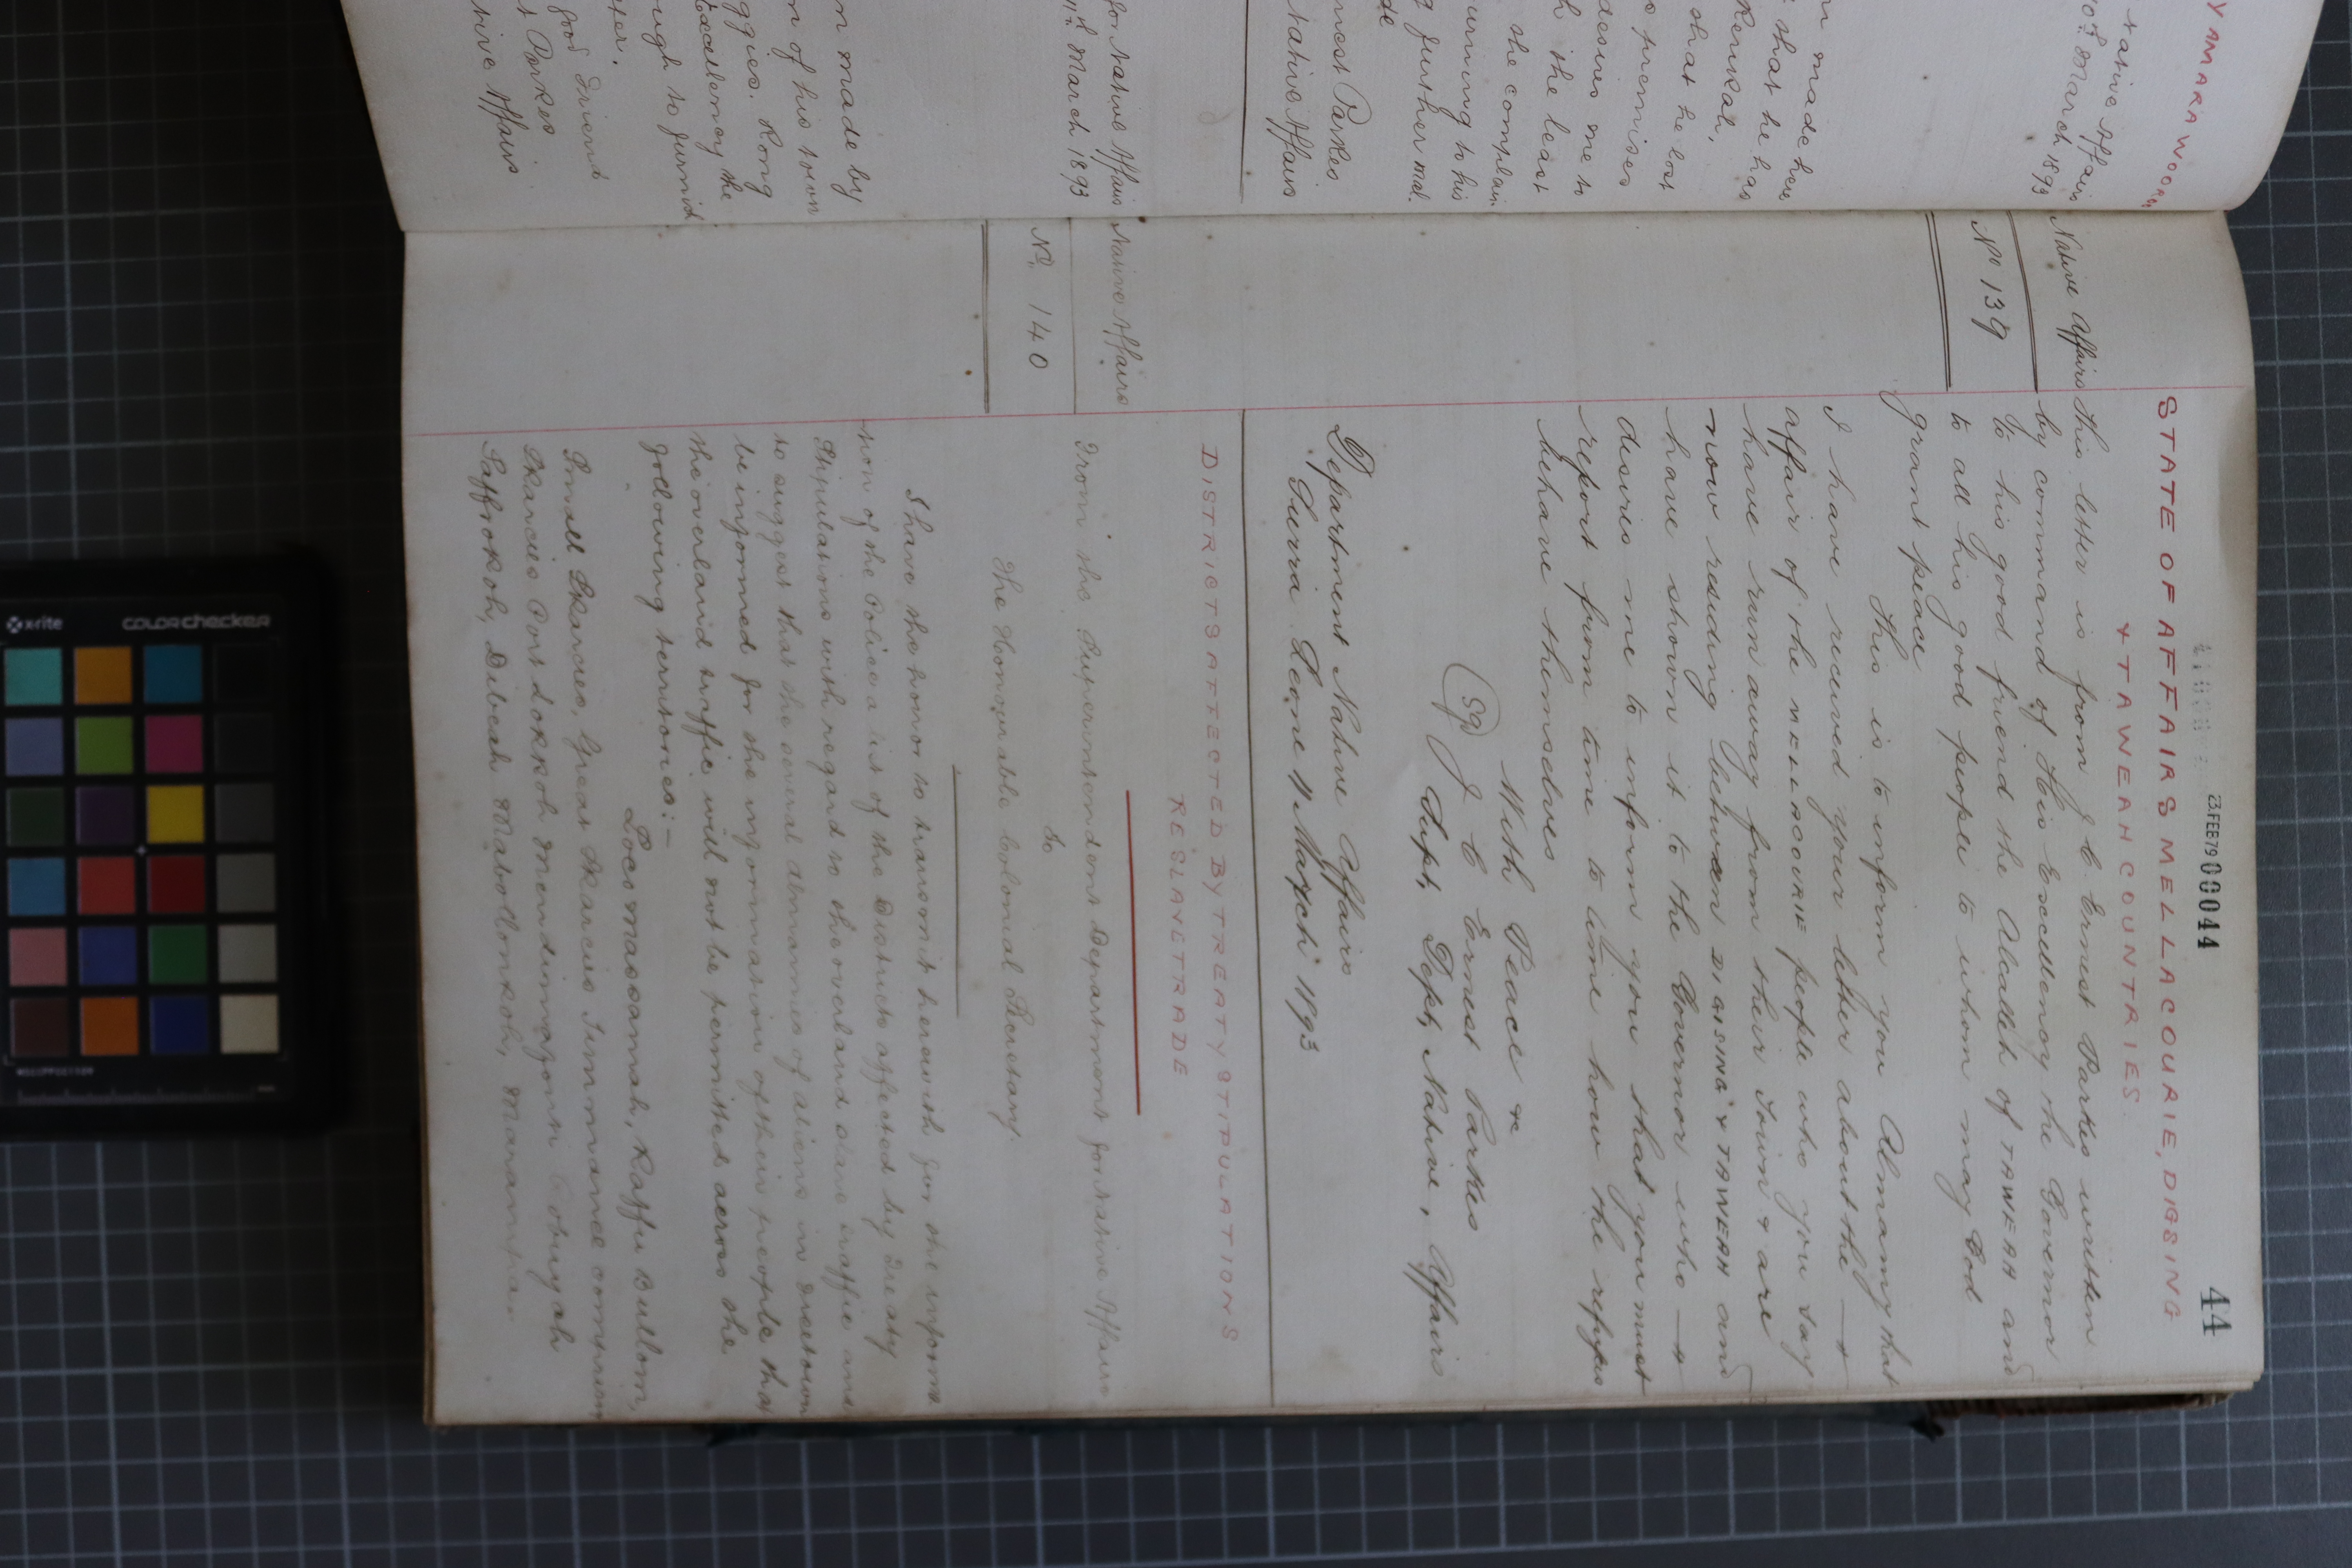 YAMARA WOORO
Native Affairs
10th March 1893
n made here
that he has
Kenkah,
that he lost
premises
desires me to
h the least
the complain
urning to his
g further mol
nest Parkes
Native Affairs
for Native Affairs
11th March 1893
n made by
n of his town
ggies. Kong
Excellency the
ugh to furnish
good Friend
t Parkes
tive Affairs
23 FEB 79 00044
44
STATE OF AFFAIRS MELLACOURIE, DIGSING
& TAWEAH COUNTRIES.
Native Affairs
No 139
This letter is from J. C. Ernest Parkes written
by command of His Excellency the Governor
to his good friend the Alcallah of TAWEAH and
to all his good people to whom may God
grant peace
This is to inform you Almamy that
I have received your letter about the
affair of the MELLACOURIE people who you say
have run away from their town & are
now residing between DIGSING & TAWEAH and
have shown it to the Governor who
desires me to inform you that you must
report from time to time how the refugees
behave themselves
With Peace &c
(Sg) J C Ernest Parkes
Supt, Dept, Native, Affairs
Department Native Affairs
Sierra Leone 11 March 1893
DISTRICTS AFFECTED BY TREATY STIPULATIONS
RE SLAVE TRADE
Native Affairs
No. 140
From the Superintendent Department for Native Affairs
To
The Honourable Colonial Secretary
I have the honor to transmit herewith for the informa
tion of the Police a list of the Districts affected by Treaty
Stipulations with regard to the overland slave traffic and
to suggest that the several Almamies of aliens in Freetown
be informed for the information of their people that
the overland traffic will not be permitted across the
following territories:—
Loco Massamah, Kaffu Bullom,
Small Skarcies, Great Skarcies Timmanee comprising
Skarcies Port Lokkoh
Saffrokoh, Dibeah